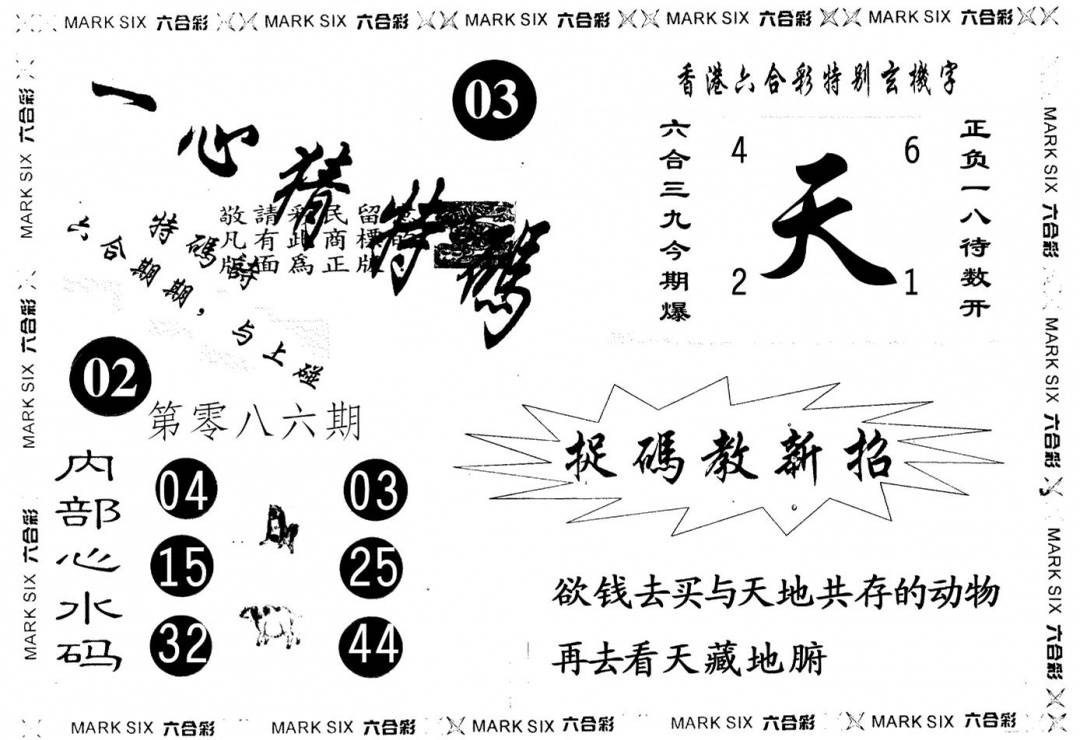 MARK SIX 六合彩 MARK SIX 六合彩 MARK SIX 六合彩 MARK SIX 六合彩 MARK SIX 六合彩
MARK SIX 六合彩 MARK SIX 六合彩 MARK SIX 六合彩
一心猜特碼
03
敬請彩民留意
凡有此商標的
版面為正版
特碼詩
六合期期，与上碰
02
第零八六期
内部心水码
04 03
15 25
32 44
香港六合彩特别玄機字
六合三九今期爆
4 6
天
2 1
正负一八待数开
捉碼教新招
欲钱去买与天地共存的动物
再去看天藏地腑
MARK SIX 六合彩 MARK SIX 六合彩 MARK SIX 六合彩
MARK SIX 六合彩 MARK SIX 六合彩 MARK SIX 六合彩 MARK SIX 六合彩 MARK SIX 六合彩